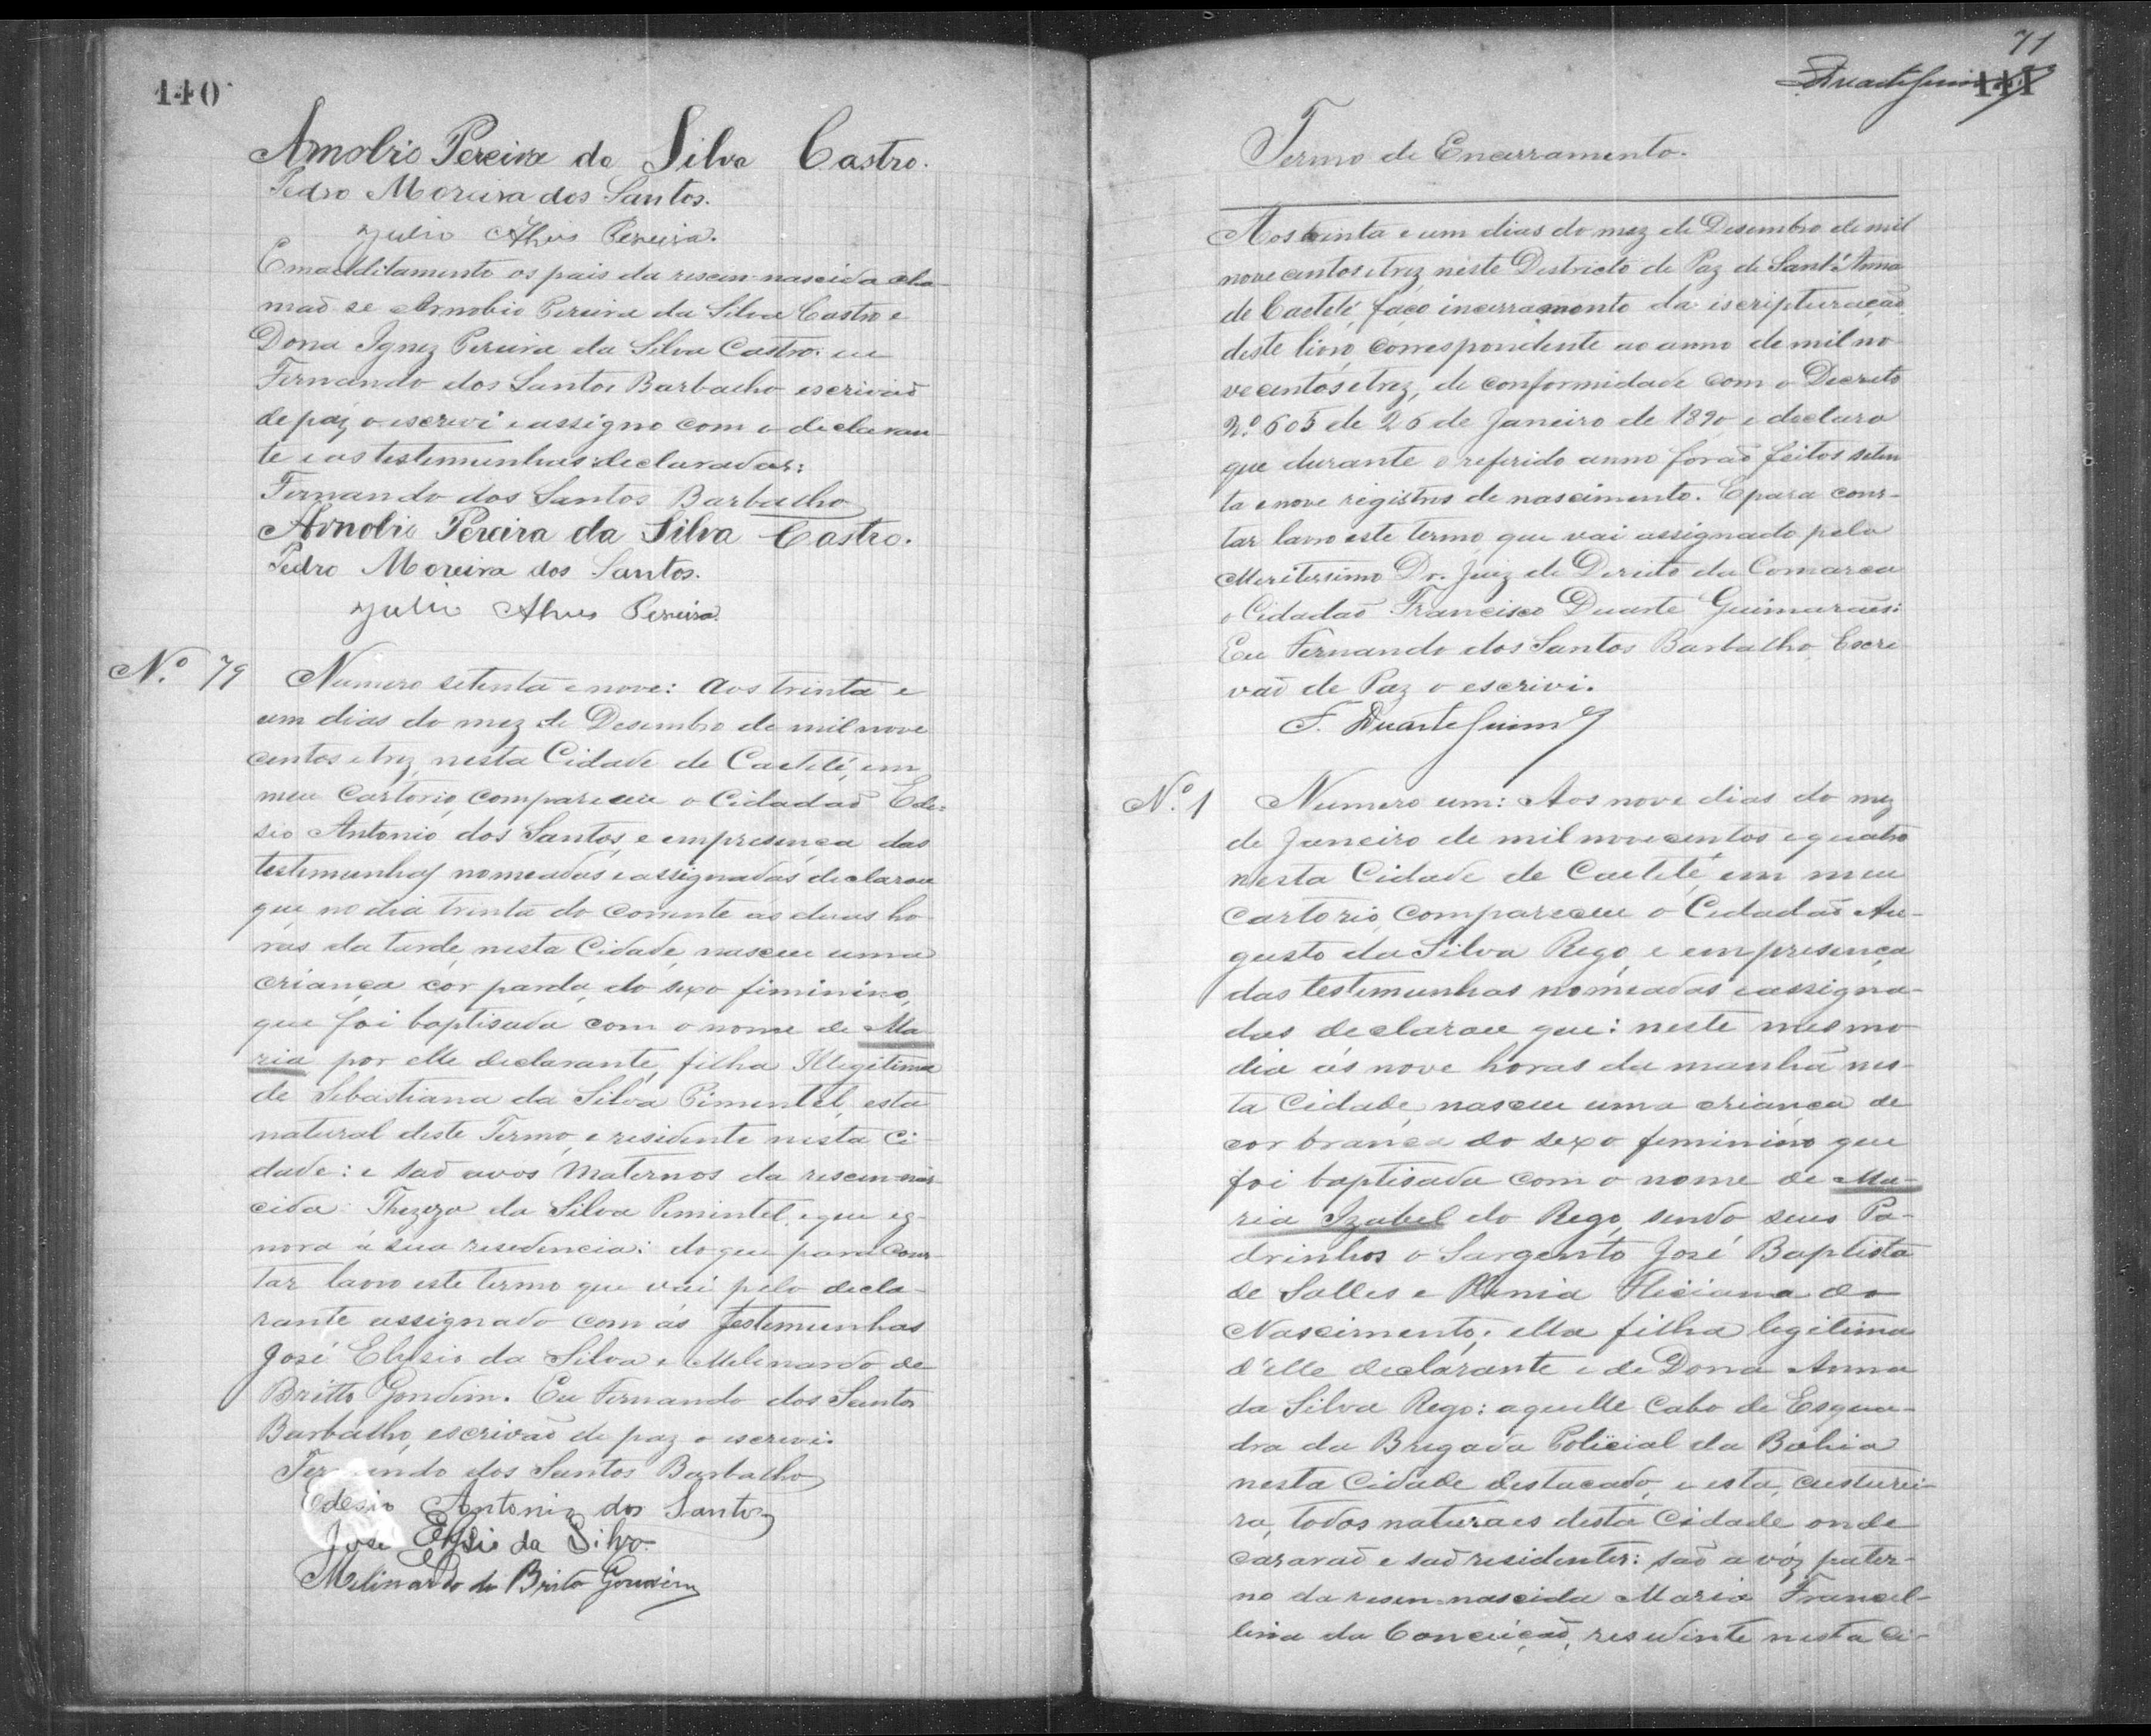 140
Arnobio Pereira da Silva Castro.
Pedro Moreira dos Santos.
Julio Alves Pereira.
Em additamento os pais da rescem-nascida cha-
maõ se Arnobio Pereira da Silva Castro e
Dona Ignez Pereira da Silva Castro: eu
Fernando dos Santos Barbalho escrivaõ
de paz o escrevi e assigno com o declaran-
te e as testemunhas declaradas:
Fernando dos Santos Barbalho
Arnobio Pereira da Silva Castro.
Pedro Moreira dos Santos.
Julio Alves Pereira.
Nº 79 Numero setenta e nove: Aos trinta e
um dias do mez de Desembro de mil nove
centos e trez, nesta Cidade de Caetité, em
meu Cartorio, compareceu o Cidadaõ Ede-
sio Antonio dos Santos, e em presença das
testemunhas nomeadas e assignadas declarou
que no dia trinta do corrente as duas ho-
ras da tarde, nesta Cidade, nasceu uma
criança côr parda, do sexo fiminino,
que foi baptisada com o nome de Ma-
ria por elle declarante, filha Illegitima
de Sebastiana da Silva Pimentel, esta
natural deste Termo, e residente nesta Ci-
dade: e saõ avos Maternos da rescem-nas-
cida da Silva Pimentel, e que eg-
nora á sua resedencia: do que para cons-
tar lavro este termo que vai pelo decla-
rante assignado com as testemunhas
José Elysio da Silva e Melinardo de
Britto Gondim. Eu Fernando dos Santos
Barbalho, escrivaõ de paz o escrevi.
Fernando dos Santos Barbalho
Edesio Antonio dos Santos
José Elysio da Silva.
Melinardo de Brito Gondim
71
Duarte Guims
141
Termo de Encerramento.
Aos trinta e um dias do mez de Desembro de mil
nove centos e trez neste Districto de Paz de Sant'Anna
de Caetité, faço incerramento da iscripturação
deste livro, correspondente ao anno de mil no-
vecentos e trez, de conformidade com o Decreto
Nº 605 de 26 de Janeiro de 1890 e declaro
que durante o referido anno foraõ feitos seten
ta e nove registros de nascimento. E para cons-
tar lavro este termo que vai assignado pelo
Meritissimo Dr. Juiz de Dereito da Comarca
o Cidadaõ Francisco Duarte Guimarães:
Eu Fernando dos Santos Barbalho Escri
vaõ de Paz o escrivi.
F. Duarte Guims
Nº 1 Numero um: Aos nove dias do mez
de Janeiro de mil novecentos e quatro
nesta Cidade de Caetité, em meu
Cartorio, compareceu o Cidadaõ Au-
gusto da Silva Rego, e em presença
das testemunhas nomeadas e assigna-
das declarou que: neste mesmo
dia ás nove horas da manhã nes-
ta Cidade, nasceu uma criança de
cor branca do sexo feminino que
foi baptisada com o nome de Ma-
ria Izabel do Rego, sendo seus Pa-
drinhos o Sargento José Baptista
de Salles e Feliciana do
Nascimento; ella filha legitima
d'elle declarante e de Dona Anna
da Silva Rego: aquelle Cabo de Esqua-
dra da Bregada Policial da Bahia
nesta Cidade destacado, e esta, custurei-
ra, todos naturaes desta Cidade onde
casaraõ e saõ residentes: saõ avóz pater-
no da rescem-nascida Maria Francel-
lina da Conceição, resedinte nesta Ci-